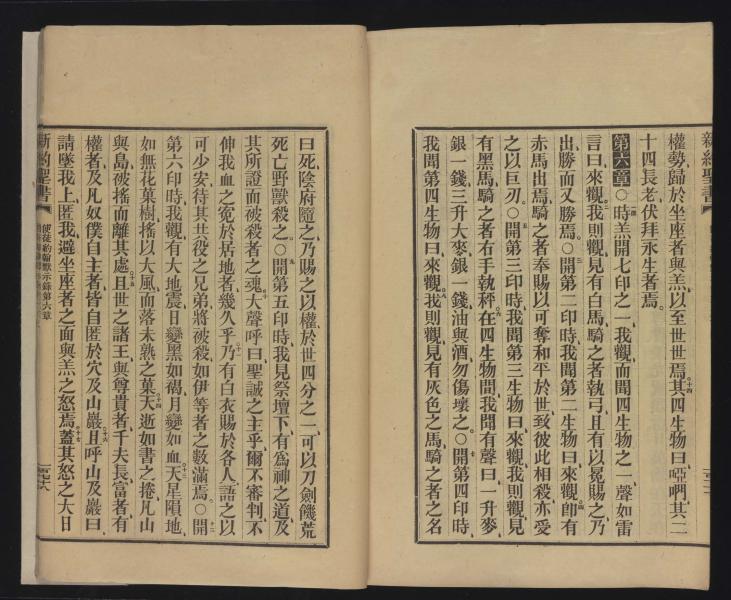 新約聖書
權勢、歸於坐座者與羔、以至世世焉、其四生物曰、啞啊、其二
十四長老、伏拜永生者焉。
第六章 ○時羔開七印之一、我觀、而聞四生物之一、聲如雷
言曰、來觀、我則觀、見有白馬、騎之者執弓、且有以冕賜之、乃
出、勝而又勝焉。○開第二印時、我聞第二生物曰、來觀、卽有
赤馬出焉、騎之者奉賜以可奪和平於世、致彼此相殺、亦受
之以巨刃。○開第三印時、我聞第三生物曰、來觀、我則觀、見
有黑馬、騎之者右手執秤、在四生物間、我聞有聲曰、一升麥、
銀一錢、三升大麥、銀一錢、油與酒、勿傷壞之。○開第四印時、
我聞第四生物曰、來觀、我則觀、見有灰色之馬、騎之者之名
曰死、陰府隨之、乃賜之以權於世四分之一、可以刀劍饑荒
死亡野獸殺之。○開第五印時、我見祭壇下、有爲神之道、及
其所證而被殺者之魂、大聲呼曰、聖誠之主乎、爾不審判、不
伸我血之冤於居地者、幾久乎、乃有白衣賜於各人、語之以
可少安、待其共役之兄弟、將被殺如伊等者之數滿焉。○開
第六印時、我觀、有大地震、日變黑如褐、月變如血、天星隕地、
如無花菓樹、搖以大風、而落未熟之菓、天逝如書之捲、凡山
與島、被搖而離其處、且世之諸王、與尊貴者、千夫長、富者、有
權者、及凡奴僕自主者、皆自匿於穴及山巖、且呼山及巖曰、
請墜我上、匿我、避坐座者之面、與羔之怒焉、蓋其怒之大日
新約聖書 使徒約翰默示錄第六章